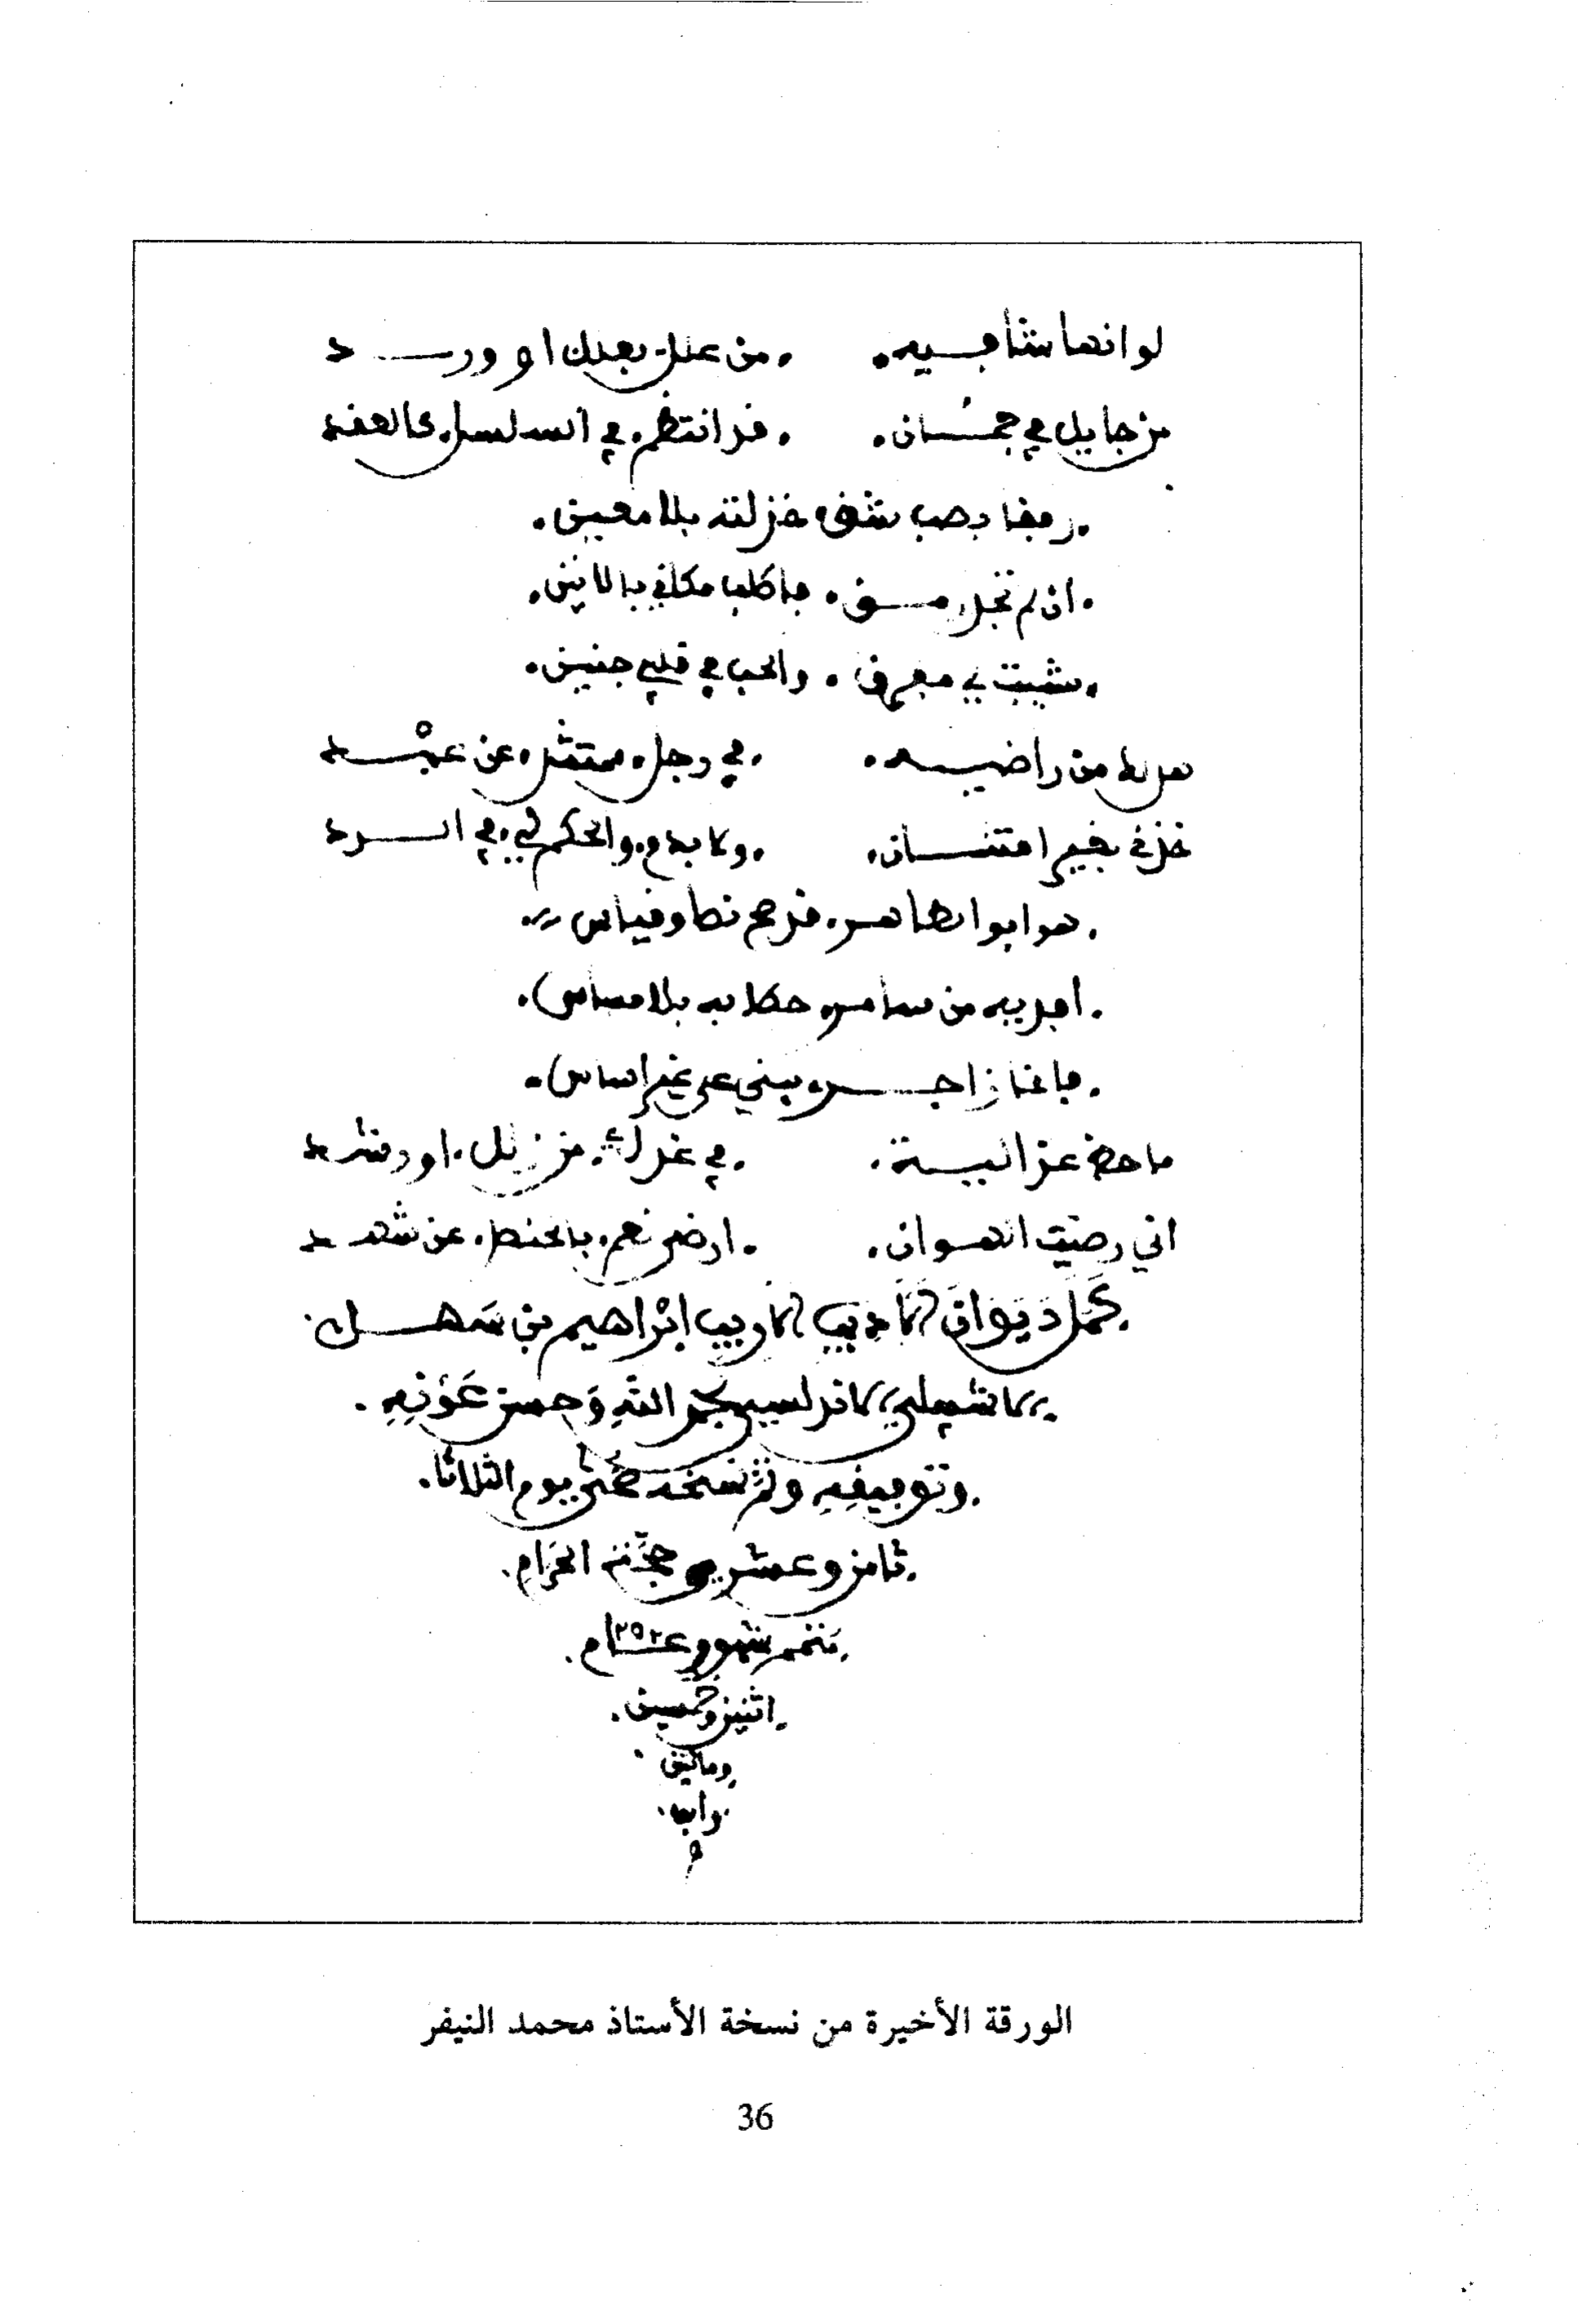 لو انها شافيه . من علل بعدك او ورد
من جايل في جمان . قد انتظم في السلسل كالعقد
رفقا بصب شفه غزلته بلا معين
ان لم تجد
شيبت لي مفرق . والحب في قلبي جنين
من راضيه . في رجل ممتثل عن عبد
بغير امتنان . ولا يدم والحكم لي في الرد
هو ابو الطاهر قد صح نصا وقياس
افديه من سامر بلا مساس
يبني على غير اساس
ما حض عن البينة . في عذلك من زلل او رشد
اني رضيت الهوان . ارضى نعم بالحنظل عن شهد
كمل ديوان الاديب الاريب ابراهيم بن سهل
الاشبيلي الاندلسي بحمد الله وحسن عونه
وتوفيقه وتم نسخه ضحى يوم الثلاثا
ثامن وعشري حجة الحرام
متمم شهور عام ٢٥٢
اثنين وخمسين
ومايتين
والف
الورقة الأخيرة من نسخة الأستاذ محمد النيفر
36